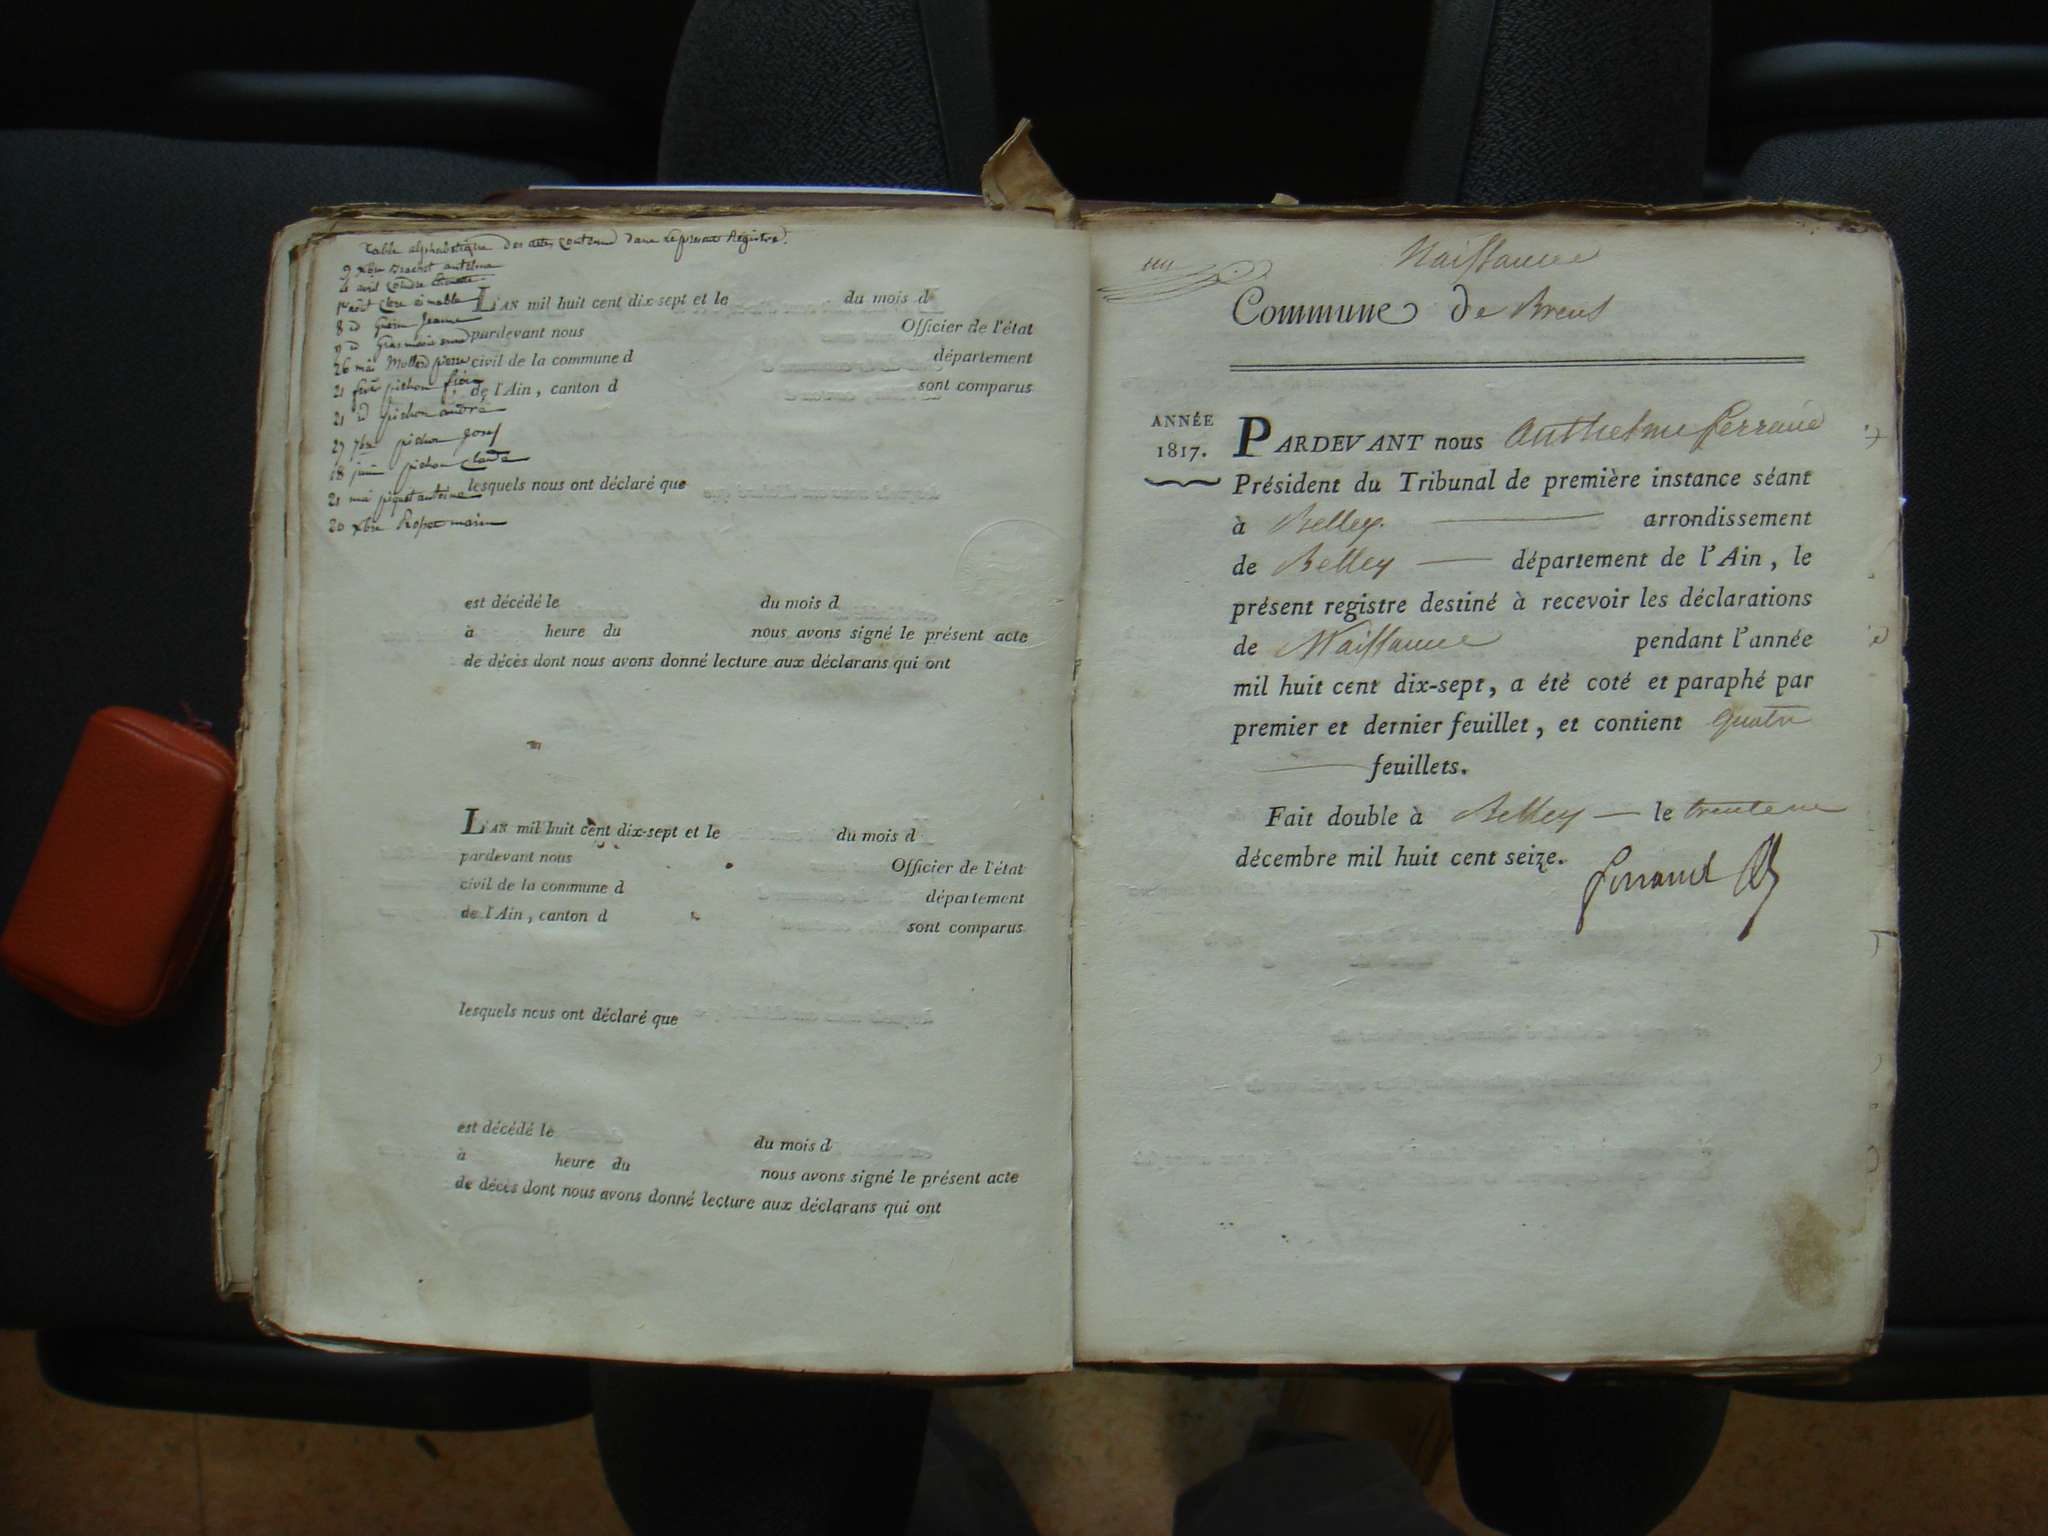 Table alphabetique des actes contenus dans le present Registre.
9 xbre Brachet antelme
4 avril Coudre
1er aoüt Clere aimable
8 d Guérin Jeanne
9 d
26 mai Mollard pierre
21 fevr pichon
21 d pichon andré
27 7bre pichon Josef
18 juin pichon Claude
21 mai piquet antelme
20 xbre Ropot marie
L'AN mil huit cent dix-sept et le du mois d
pardevant nous Officier de l'état
civil de la commune d département
de l'Ain, canton d sont comparus
lesquels nous ont déclaré que
est décédé le du mois d
à heure du nous avons signé le présent acte
de décès dont nous avons donné lecture aux déclarans qui ont
L'AN mil huit cent dix-sept et le du mois d
pardevant nous Officier de l'état
civil de la commune d département
de l'Ain, canton d sont comparus
lesquels nous ont déclaré que
est décédé le du mois d
à heure du nous avons signé le présent acte
de décès dont nous avons donné lecture aux déclarans qui ont
Naissance
Commune de Brens
ANNÉE
1817.
PARDEVANT nous Anthelme ferrand
Président du Tribunal de première instance séant
à Belley arrondissement
de Belley département de l'Ain, le
présent registre destiné à recevoir les déclarations
de Naissance pendant l'année
mil huit cent dix-sept, a été coté et paraphé par
premier et dernier feuillet, et contient quatre
feuillets.
Fait double à Belley le trente un
décembre mil huit cent seize.
ferrand